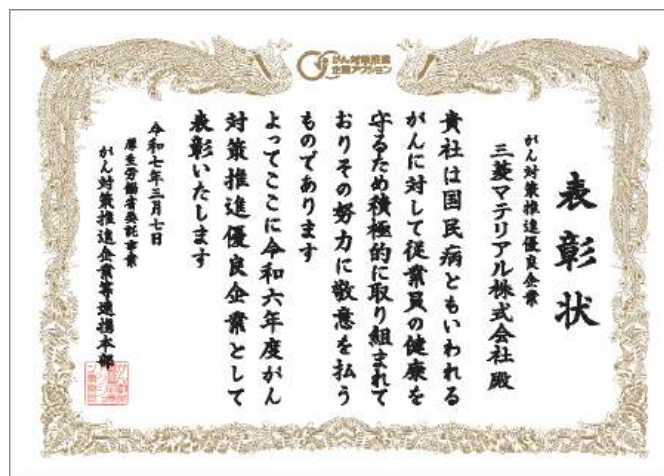 がん対策推進
企業アクション
表彰状
がん対策推進優良企業
三菱マテリアル株式会社殿
貴社は国民病ともいわれる
がんに対して従業員の健康を
守るため積極的に取り組まれて
おりその努力に敬意を払う
ものであります
よってここに令和六年度がん
対策推進優良企業として
表彰いたします
令和七年三月七日
厚生労働省委託事業
がん対策推進企業等連携本部